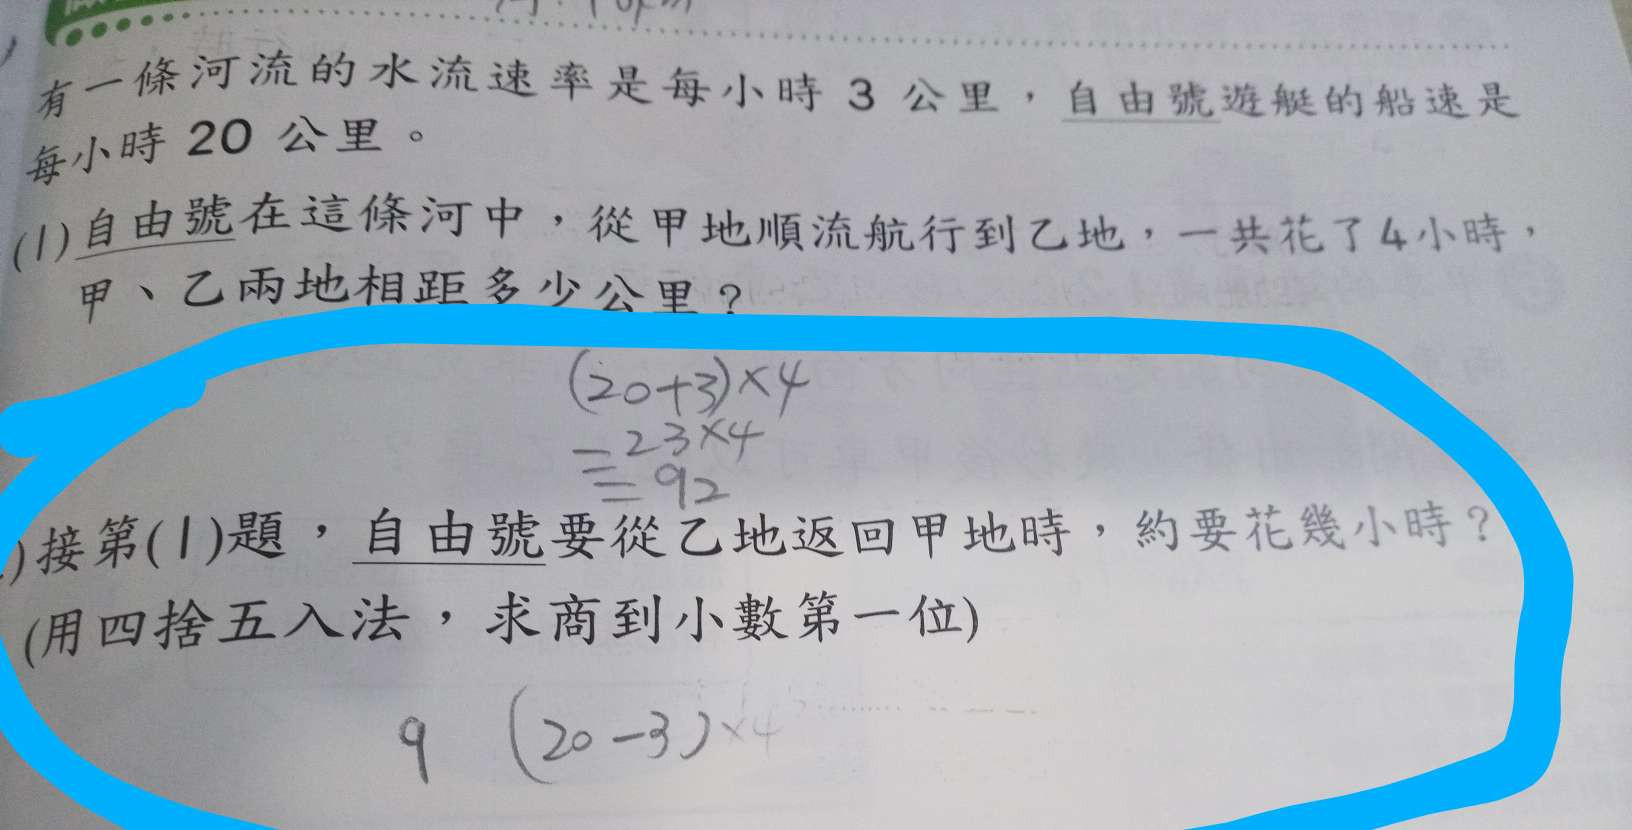 有一條河流的水流速率是每小時 3 公里，自由號遊艇的船速是
每小時 20 公里。
(1)自由號在這條河中，從甲地順流航行到乙地，一共花了4小時，
甲、乙兩地相距多少公里？
(20+3)×4
=23×4
=92
)接第(1)題，自由號要從乙地返回甲地時，約要花幾小時？
(用四捨五入法，求商到小數第一位)
9 (20-3)×4